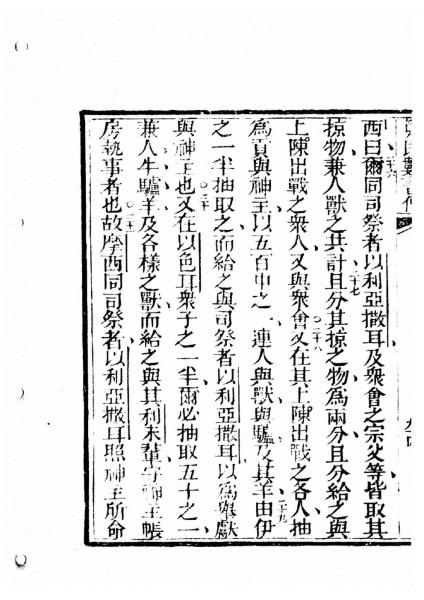 西曰二十六爾同司祭者以利亞撒耳及衆會之宗父等皆取其
掠物兼人獸之共計二十七且分其掠之物為兩分且分給之與
上陳出戰之衆人又與衆會二十八又在其上陳出戰之各人抽
為貢與神主以五百中之一連人與獸與驢及其羊二十九由伊
之一半抽取之而給之與司祭者以利亞撒耳以為舉獻
與神主也三十又在以色耳衆子之一半爾必抽取五十之一
兼人牛驢羊及各樣之獸而給之與其利未輩守神主帳
房執事者也三十一故摩西同司祭者以利亞撒耳照神主所命